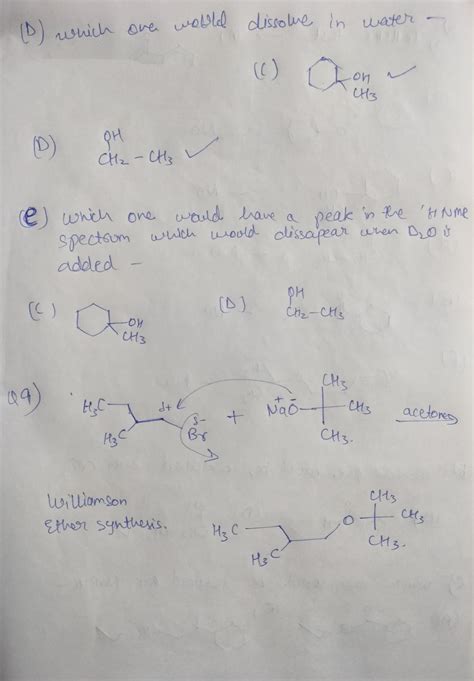 (D) which one would dissolve in water -
(C) OH
CH3
(D) OH
CH2 - CH3
(e) which one would have a peak in the 'H NMR
spectrum which would dissapear when D2O is
added -
(C) OH
CH3
(D) OH
CH2 - CH3
Q9) H3C H3C δ+ δ- Br + Na+ O- CH3 CH3 CH3. acetone
Williamson
Ether synthesis.
H3C H3C O CH3 CH3 CH3.